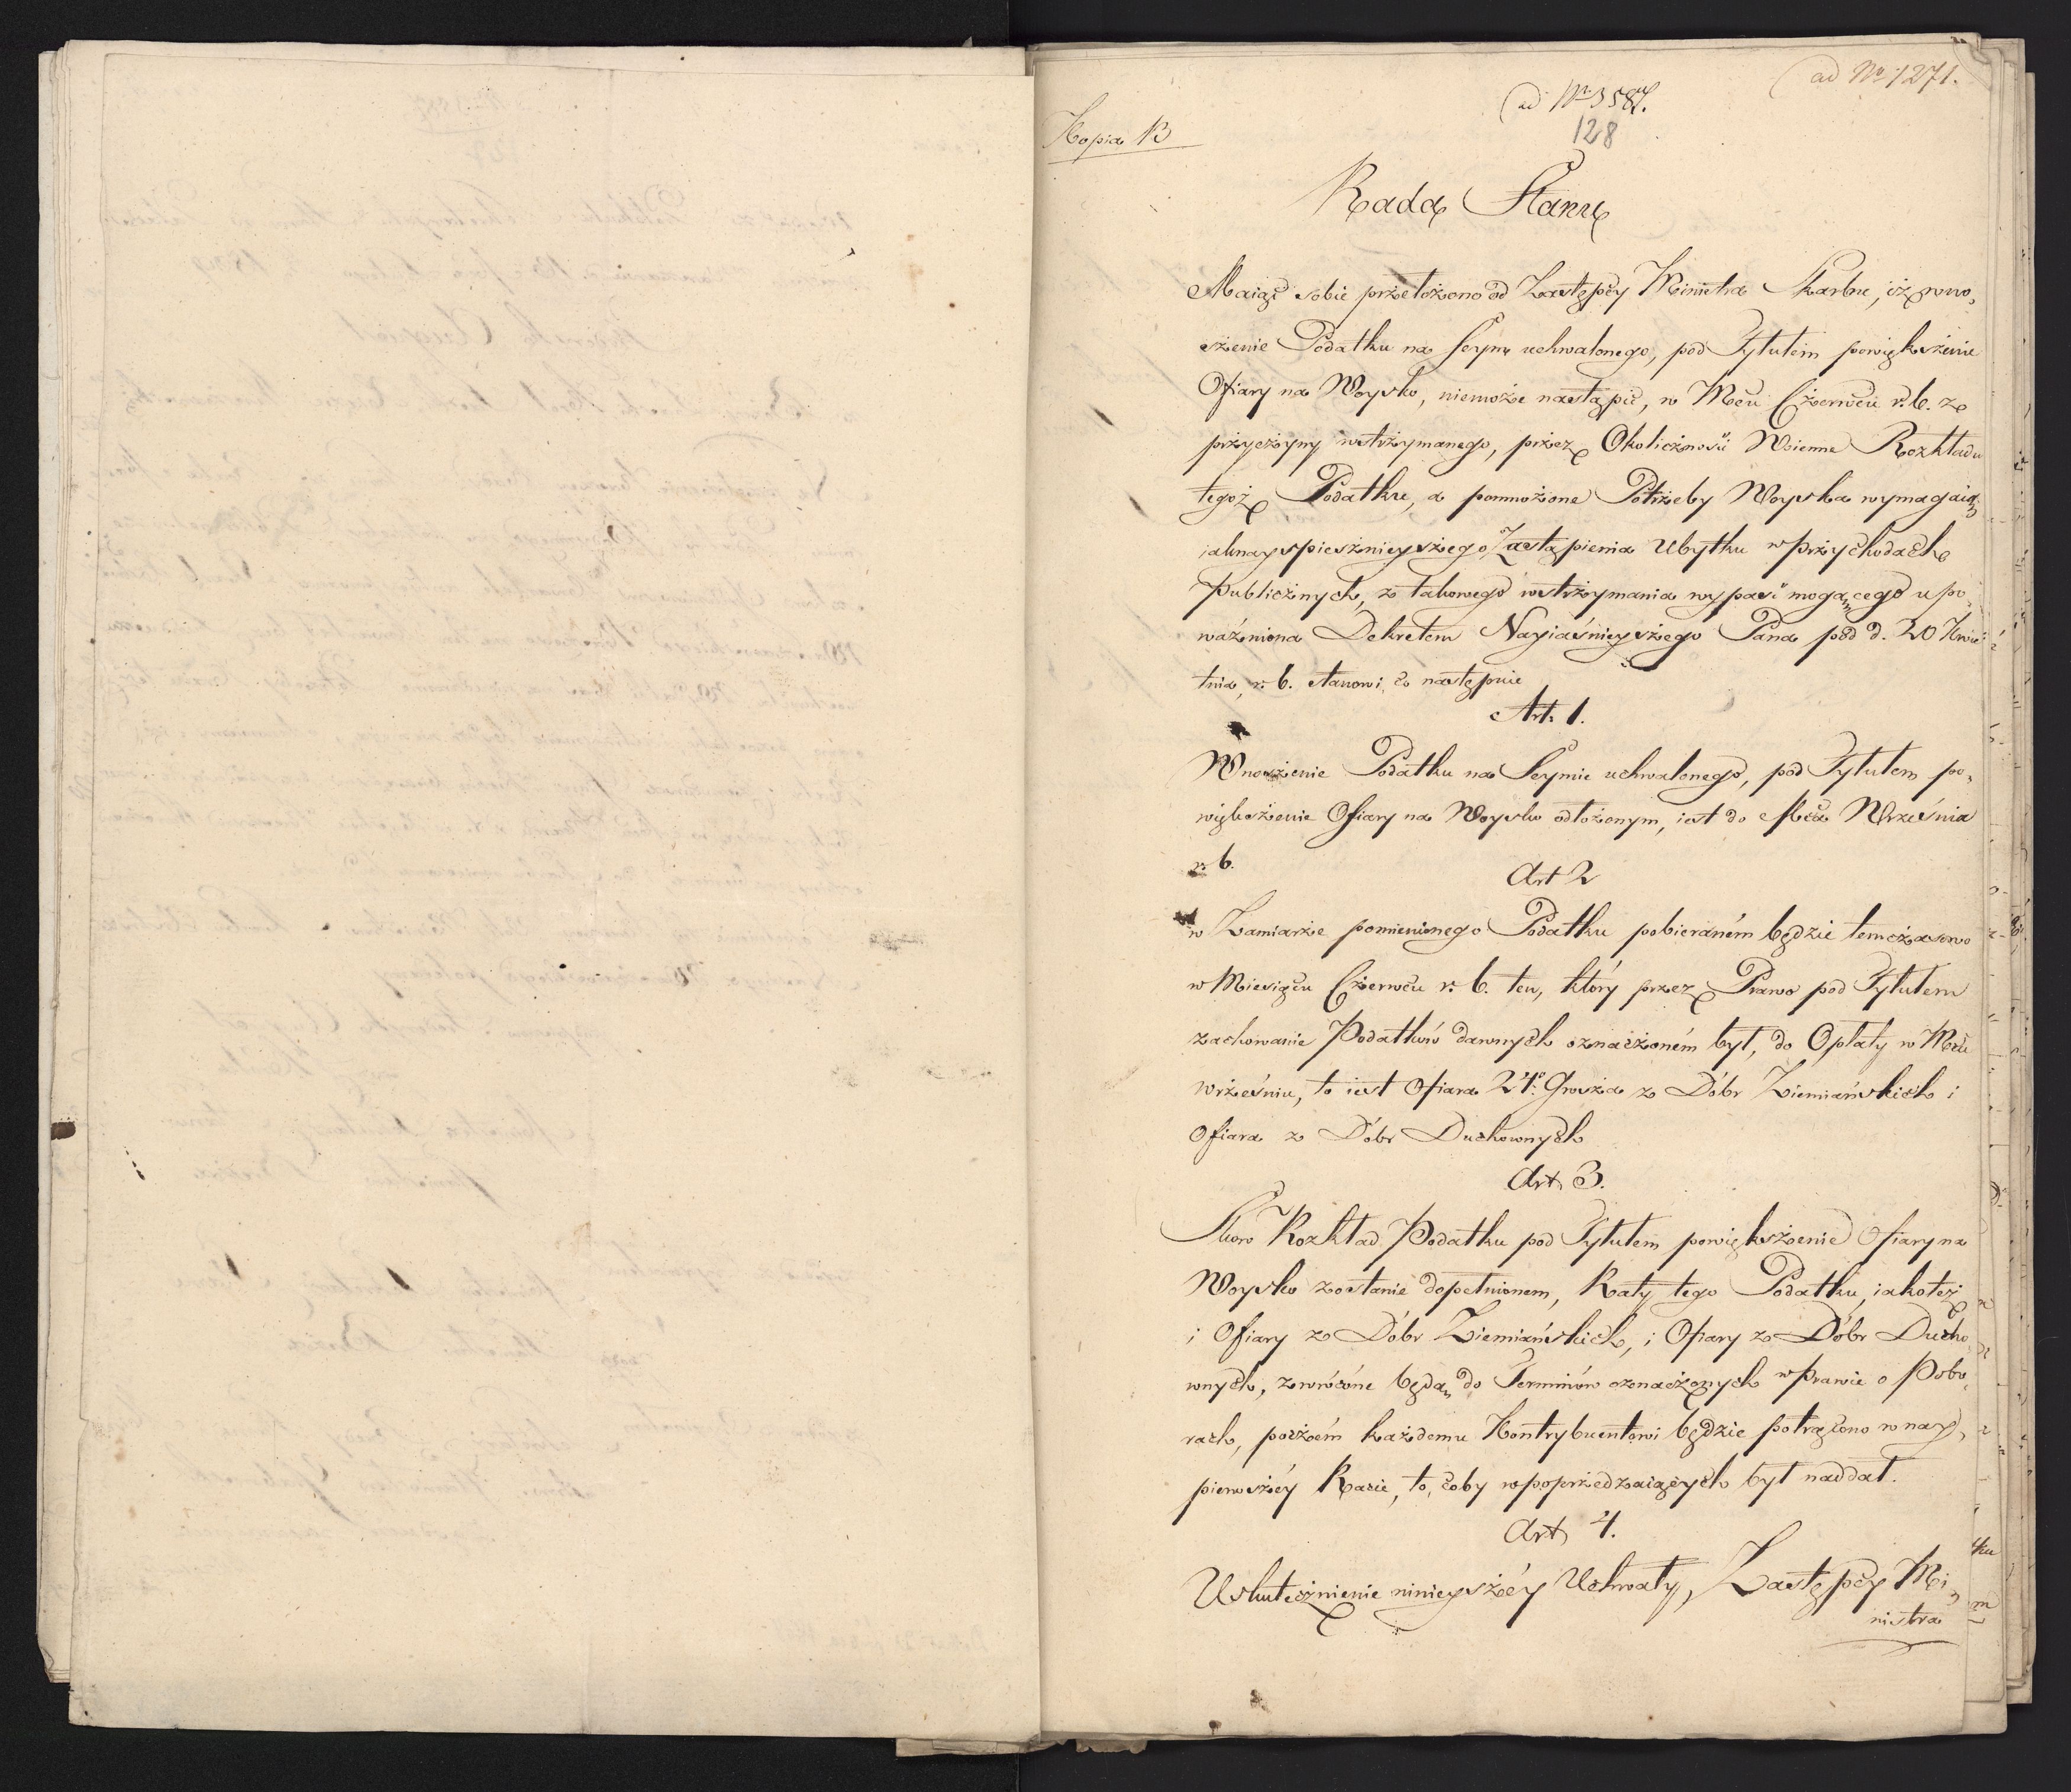 ad No 1271.
ad No 3587.
128
Kopia B
Rada Stanu
Maiąc sobie przełożono od Zastępcy Ministra Skarbu, iż wno„
szenie Podatku na Seym uchwalonego, pod Tytułem powiększenie
Ofiary na Woysko, niemoże nastąpić, w Mcu Czerwcu r. b. z
przyczyny wstrzymanego, przez Okoliczności Woienne Rozkładu
tegoż Podatku, a pomnożone Potrzeby Woyska wymagaią
iaknayspiesznieyszego Zastąpienia Ubytku w Przychodach
Publicznych, z takowego wstrzymania wypaść mogącego upo„
ważniona Dekretem Nayiaśnieyszego Pana pod d. 20 Kwie„
tnia, r. b. stanowi, co następuie
Art. 1.
Wnoszenie Podatku na Seymie uchwalonego, pod Tytułem po„
większenie Ofiary na Woysko odłożonym, iest do Mca Września
r. b.
Art 2
w Zamiarze pomienionego Podatku pobieraném będzie temczasowo
w Miesiącu Czerwcu r. b. ten, który przez Prawo pod Tytułem
zachowanie Podatków dawnych oznaczoném był, do Opłaty w Mcu
wrześniu, to iest Ofiara 24. Grosza z Dóbr Ziemiańskich i
Ofiara z Dóbr Duchownych
Art. 3.
Skoro Rozkład Podatku pod Tytułem powiększenie Ofiary na
Woysko zostanie dopełnionem, Raty tego Podatku, iakoteż
i Ofiary z Dóbr Ziemiańskich, i Ofiary z Dóbr Ducho„
wnych, zwrócone będą do Terminów oznaczonych w Prawie o Pobo„
rach, poczém każdemu Kontrybuentowi będzie potrącono w nay„
pierwszéy Racie, to, coby w poprzedzaiących był naddał.
Art 4.
Uskutecznienie ninieyszéy Uchwały, Zastępcy Mi„
nistra